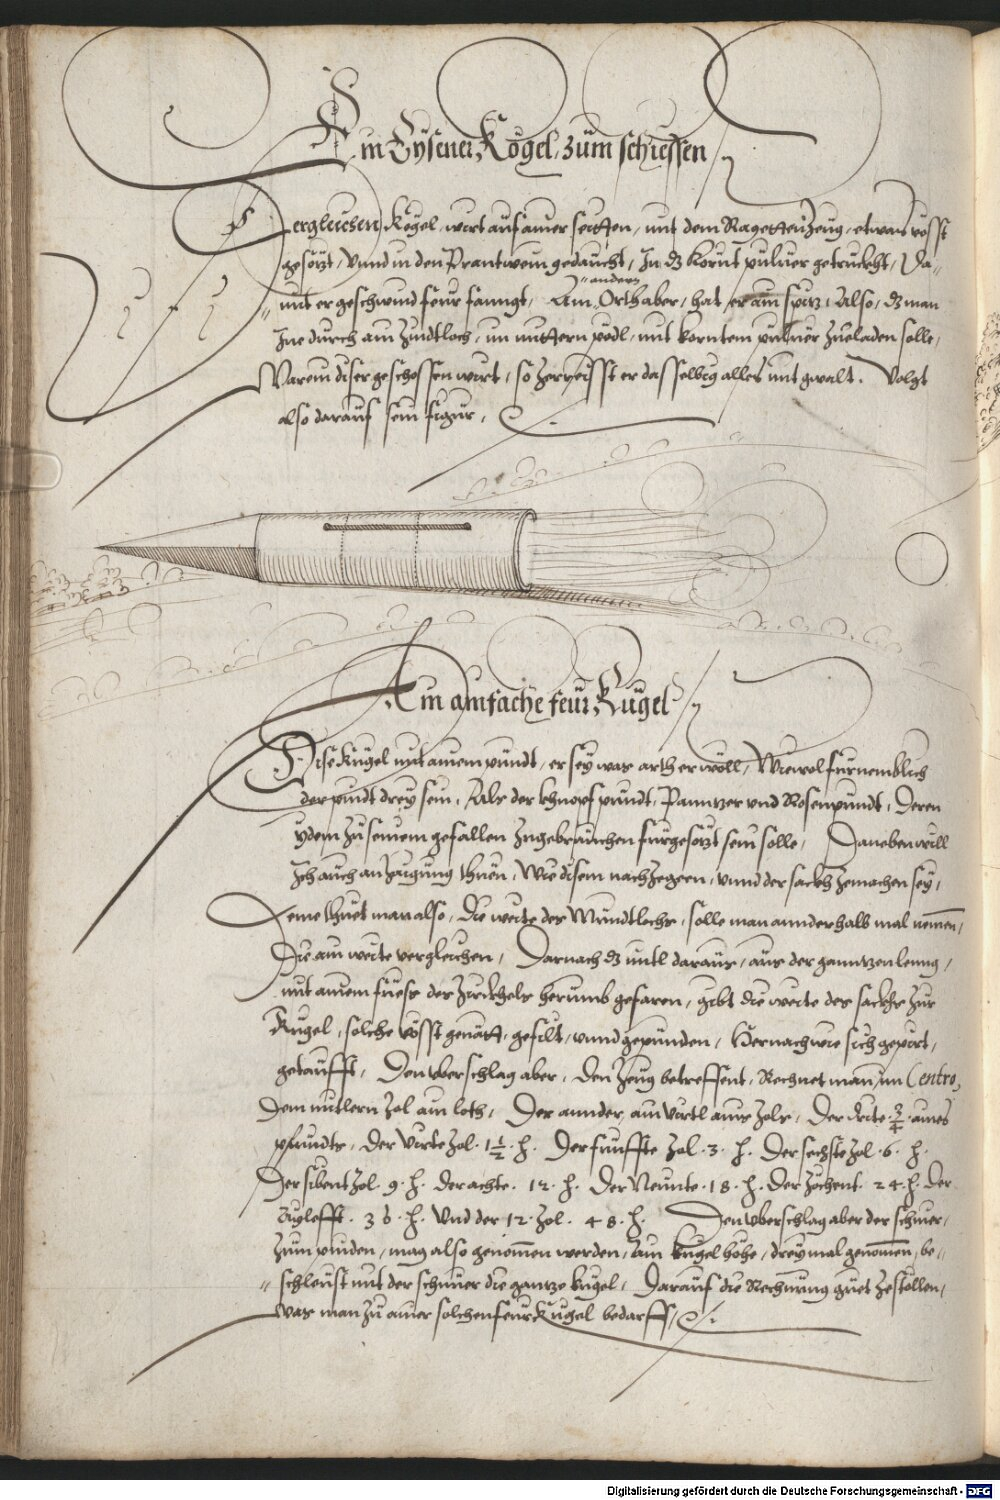 Ain Eysener Kögel, zum schiessen
Dergleichen Kögel, wirt auf ainer seitten, mit dem Ragetten Zeug, etwas vösst
gesetzt, vnnd in den Prantwein gedaucht, In dz kornt puluer getruckht, Da=
andern
=mit er geschwind feur fanngt, Am Orth aber, hat er ain spitz, Also, dz man
Ine durch ain Zindtloch, im mittern pödl, mit korntem puluer zueladen solle,
Warein diser geschossen wirt, so zerreisst er dasselbig alles mit gwalt. Volgt
also darauf sein figur.
Ain ainfache feur Kugel
Dise Kugel mit ainem pundt, er sey was arth er wöll, Wiewol furnemblich
der pindt drey sein, Als der khnopf pundt, Panntzer vnd Rosenpundt, Deren
ydem zu seinem gefallen Zugebrauchen furgesetzt sein solle, Daneben will
Ich auch anzaigung thuen, Wie disem nachzegeen, vnnd der sackh zemachen sey,
Deme thuet man also, Die weite des Mundtlochs, solle man annderhalb mal nemen,
Die ain weite vergleichen, Darnach dz mitl daraus, aus der ganntzen leng,
mit ainem fuess des Zirckhels herumb gefaren, gibt die weite des sackhs zur
Kugel, solche vösst genätt, gefilt, vnnd gepunden, Hernach wie sich gepirt,
getaufft, Den vberschlag aber, den Zeug betreffent, Rechnet man, im Centro,
Dem mitlern Zol ain loth, Der annder, ain Virtl aines Zols, Der drite 3/4 aines
pfundts, Der Virte Zol. 1 1/2 . ℔. Der funffte Zol .3. ℔. Der sechste Zol .6. ℔.
Der sibent Zol. 9. ℔. der achte. 12. ℔. Der Neunte .18. ℔. Der Zechent. 24. ℔. Der
Aylefft. 36. ℔. Vnd der 12. Zol. 48. ℔. Den vberschlag aber der schnuer,
Zum pinden, mag also genomen werden, Ain kugel höhe, drey mal genomen, be=
=schleust mit der schnuer die gantze kugel, Darauf die Rechnung guet zestellen,
was man zu ainer solchen feur Kugel bedarff,
Digitalisierung gefördert durch die Deutsche Forschungsgemeinschaft - DFG